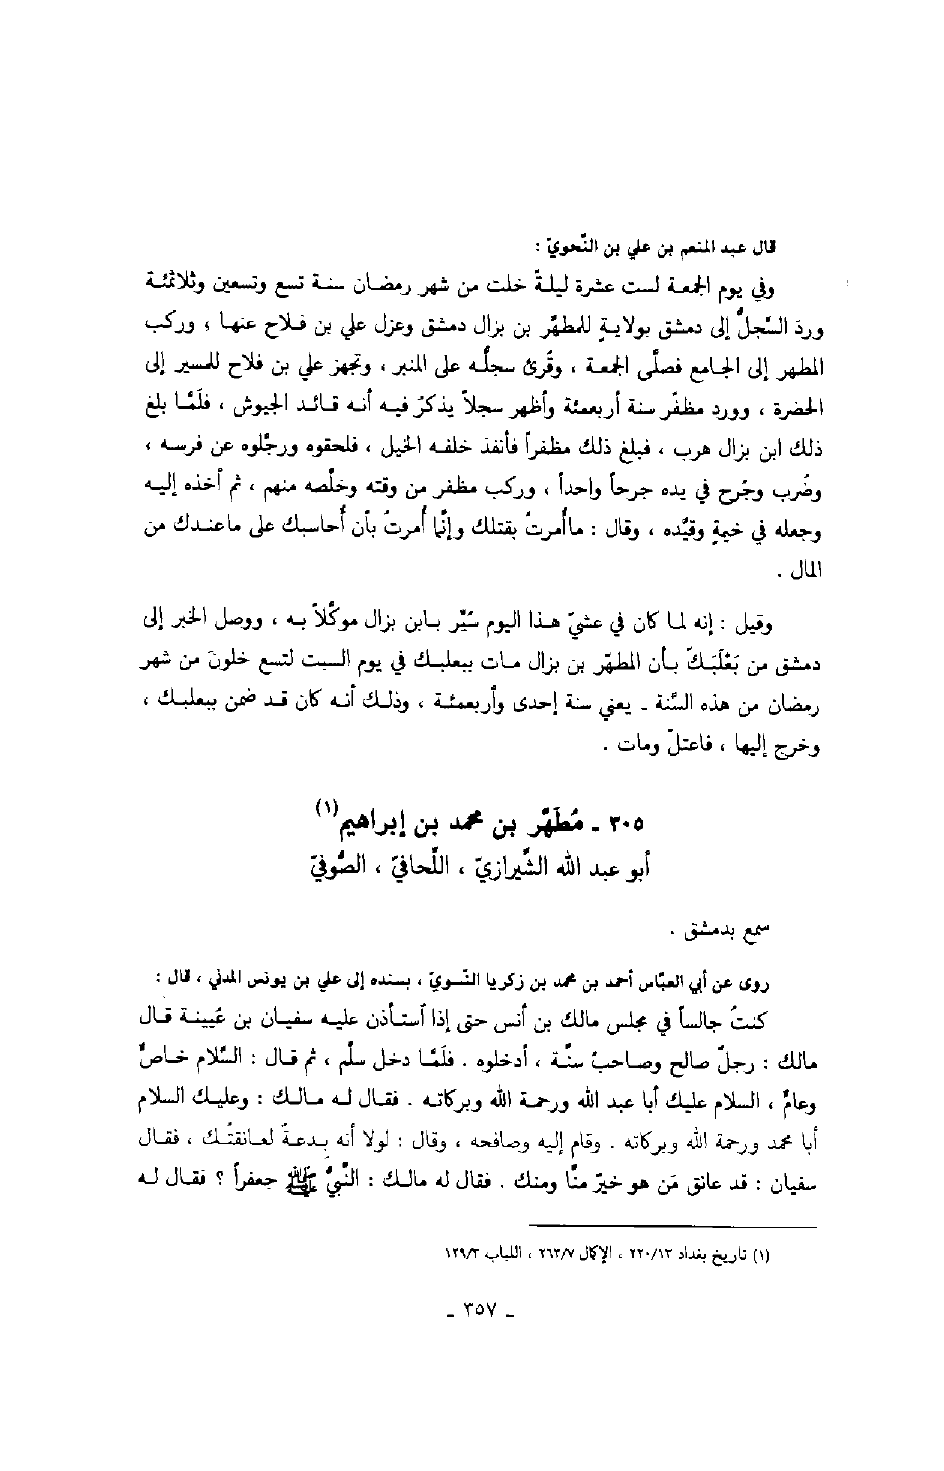 قال عبد المنعم بن علي بن النَّحويّ :
وفي يوم الجمعة لست عشرة ليلةً خلت من شهر رمضان سنة تسع وتسعين وثلاثمئة
وردَ السِّجلُّ إلى دمشق بولايةٍ للمطهَّر بن بزال دمشق وعزل علي بن فلاح عنها ، وركب
المطهر إلى الجامع فصلَّى الجمعة ، وقُرئ سجلُّه على المنبر ، وتجهز علي بن فلاح للمسير إلى
الحضرة ، وورد مظفّر سنة أربعمئة وأظهر سجلاً يذكرُ فيه أنه قائد الجيوش ، فلمَّا بلغ
ذلك ابن بزال هرب ، فبلغ ذلك مظفراً فأنفذ خلفه الخيل ، فلحقوه ورجَّلوه عن فرسه ،
وضُرب وجُرح في يده جرحاً واحداً ، وركب مظفر من وقته وخلَّصه منهم ، ثم أخذه إليه
وجعله في خيمةٍ وقيَّده ، وقال : ماأمرتُ بقتلك وإنَّما أمرتُ بأن أُحاسبك على ماعندك من
المال .
وقيل : إنه لما كان في عشيّ هذا اليوم سُيِّر بابن بزال موكَّلاً به ، ووصل الخبر إلى
دمشق من بَعْلَبَكّ بأن المطهّر بن بزال مات ببعلبك في يوم السبت لتسع خلونَ من شهر
رمضان من هذه السَّنة ـ يعني سنة إحدى وأربعمئة ، وذلك أنه كان قد ضمن ببعلبك ،
وخرج إليها ، فاعتلّ ومات .
٣٠٥ ـ مُطَهَّر بن محمد بن إبراهيم(١)
أبو عبد الله الشِّيرازيّ ، اللَّحافيّ ، الصُّوفيّ
سمع بدمشق .
روى عن أبي العبّاس أحمد بن محمد بن زكريا النَّسويّ ، بسنده إلى علي بن يونس المدني ، قال :
كنتُ جالساً في مجلس مالك بن أنس حتى إذا أستأذن عليه سفيان بن عُيينة قال
مالك : رجلٌ صالح وصاحبُ سنَّة ، أدخلوه . فلمَّا دخل سلَّم ، ثم قال : السَّلام خاصٌّ
وعامٌّ ، السلام عليك أبا عبد الله ورحمة الله وبركاته . فقال له مالك : وعليك السلام
أبا محمد ورحمة الله وبركاته . وقام إليه وصافحه ، وقال : لولا أنه بدعةٌ لعانقتُك ، فقال
سفيان : قد عانق مَن هو خيرٌ منَّا ومنك . فقال له مالك : النَّبيُّ ﷺ جعفراً ؟ فقال له
(١) تاريخ بغداد ٢٢٠/١٣ ، الإكمال ٢٦٣/٧ ، اللباب ١٢٩/٣
ـ ٣٥٧ ـ